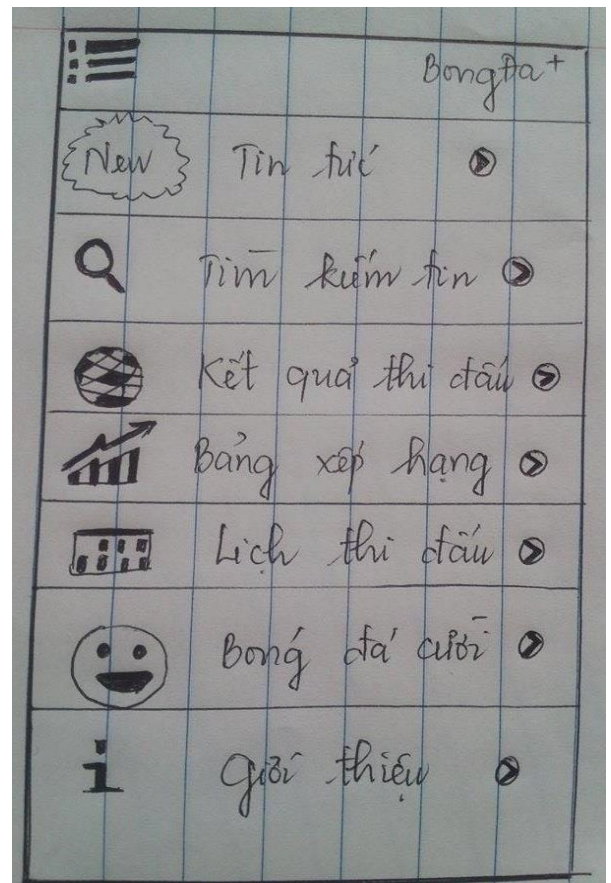 BongĐa+
New Tin tức
Tìm kiếm tin
Kết quả thi đấu
Bảng xếp hạng
Lịch thi đấu
Bóng đá cười
Giới thiệu